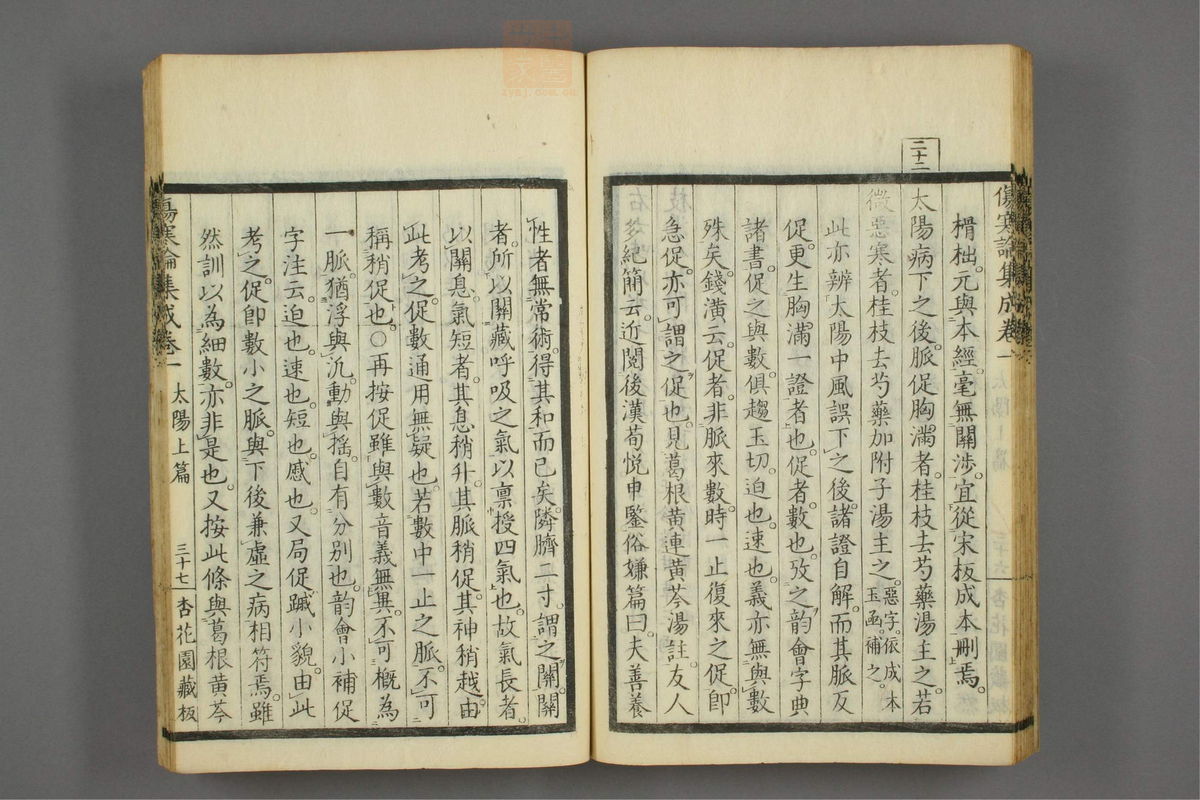 二十二
榾柮元與本經毫無關涉宜從宋板成本刪焉
太陽病下之後脈促胸滿者桂枝去芍藥湯主之若
微惡寒者桂枝去芍藥加附子湯主之惡字依成本玉函補之
此亦辨太陽中風誤下之後諸證自解而其脈反
促更生胸滿一證者也促者數也攷之韵會字典
諸書促之與數俱趨玉切迫也速也義亦無與數
殊矣錢潢云促者非脈來數時一止復來之促卽
急促亦可謂之促也見葛根黃連黃芩湯註友人
多紀簡云近閱後漢荀悅申鑒俗嫌篇曰夫善養
性者無常術得其和而已矣隣臍二寸謂之關關
者所以關藏呼吸之氣以稟授四氣也故氣長者
以關息氣短者其息稍升其脈稍促其神稍越由
此考之促數通用無疑也若數中一止之脈不可
稱稍促也○再按促雖與數音義無異不可概為
一脈猶浮與沉動與搖自有分別也韵會小補促
字注云迫也速也短也慼也又局促蹙小貌由此
考之促卽數小之脈與下後兼虛之病相符焉雖
然訓以為細數亦非是也又按此條與葛根黃芩
傷寒論集成卷一 太陽上篇 三十七 杏花園藏板
傷寒論集成卷一